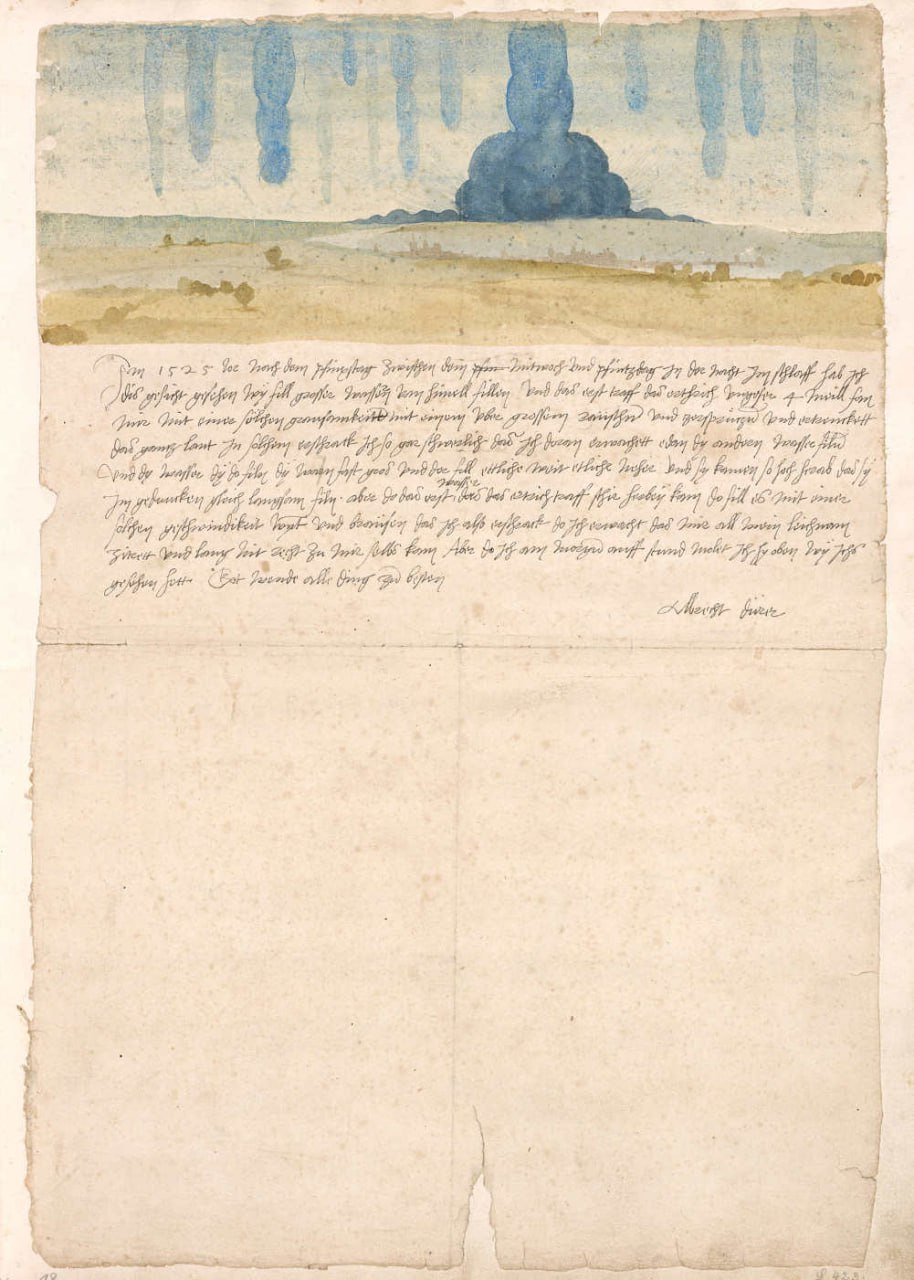 Im 1525 Jor nach dem pfinxstag zwischen dem pfin Mitwoch und pfintzdag in der nacht im schlaff hab ich
dis gesicht gesehen wy fill grosser wassern vom himell fillen Und das erst traff das erthrich ungefer 4 meill fan
mir mit einer solchen grausamkeitt mit einem uber grossem rauschn und zersprützn und ertrenckett
das gantz lant In solchem erschrack ich so gar schwerlich das ich doran erwachett e dan dy andern wasser filn
Und dy wasser dy do filn dy warn fast gros und der fill ettliche weit etliche neher Und sy kamen so hoch herab das sy
im gedancken gleich langsam filn. aber do das erst
wasser
das das ertrich traff schir herbey kam do fill es mit einer
solchen geschwindikeit wynt und braüsen das ich also erschrack do ich erwacht das mir all mein leichnam
zitrett und lang nit recht zu mir selbs kam Aber do ich am morgn auff stund molet ich hy oben wy ichs
gesehen hett. Got wende alle ding zu besten
Albrecht dürer
18